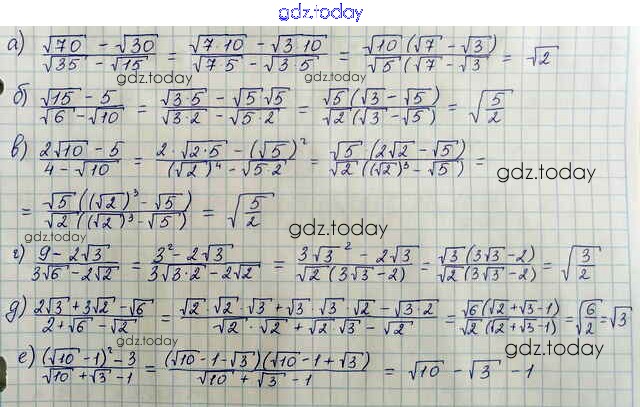 gdz.today
а) (√70 − √30)/(√35 − √15) = (√(7·10) − √(3·10))/(√(7·5) − √(3·5)) = (√10(√7 − √3))/(√5(√7 − √3) = √2
gdz.today
б) (√15 − 5)/(√6 − √10) = (√(3·5) − √5√5)/(√(3·2) − √(5·2)) = (√5(√3 − √5))/(√2(√3 − √5)) = √(5/2)
в) (2√10 − 5)/(4 − √10) = (2·√(2·5) − (√5)²)/((√2)⁴ − √(5·2)) = (√5(2√2 − √5))/(√2((√2)³ − √5)) =
gdz.today
= (√5((√2)³ − √5))/(√2((√2)³ − √5)) = √(5/2)
gdz.today
г) (9 − 2√3)/(3√6 − 2√2) = (3² − 2√3)/(3√(3·2) − 2√2) = (3√3² − 2√3)/(√2(3√3 − 2)) = (√3(3√3 − 2))/(√2(3√3 − 2)) = √(3/2)
gdz.today
д) (2√3 + 3√2 − √6)/(2 + √6 − √2) = (√2·√2·√3 + √3·√3·√2 − √(3·2))/(√2·√2 + √2·√3 − √2) = (√6(√2 + √3 − 1))/(√2(√2 + √3 − 1)) = √(6/2) = √3
gdz.today
е) ((√10 − 1)² − 3)/(√10 + √3 − 1) = ((√10 − 1 − √3)(√10 − 1 + √3))/(√10 + √3 − 1) = √10 − √3 − 1
gdz.today